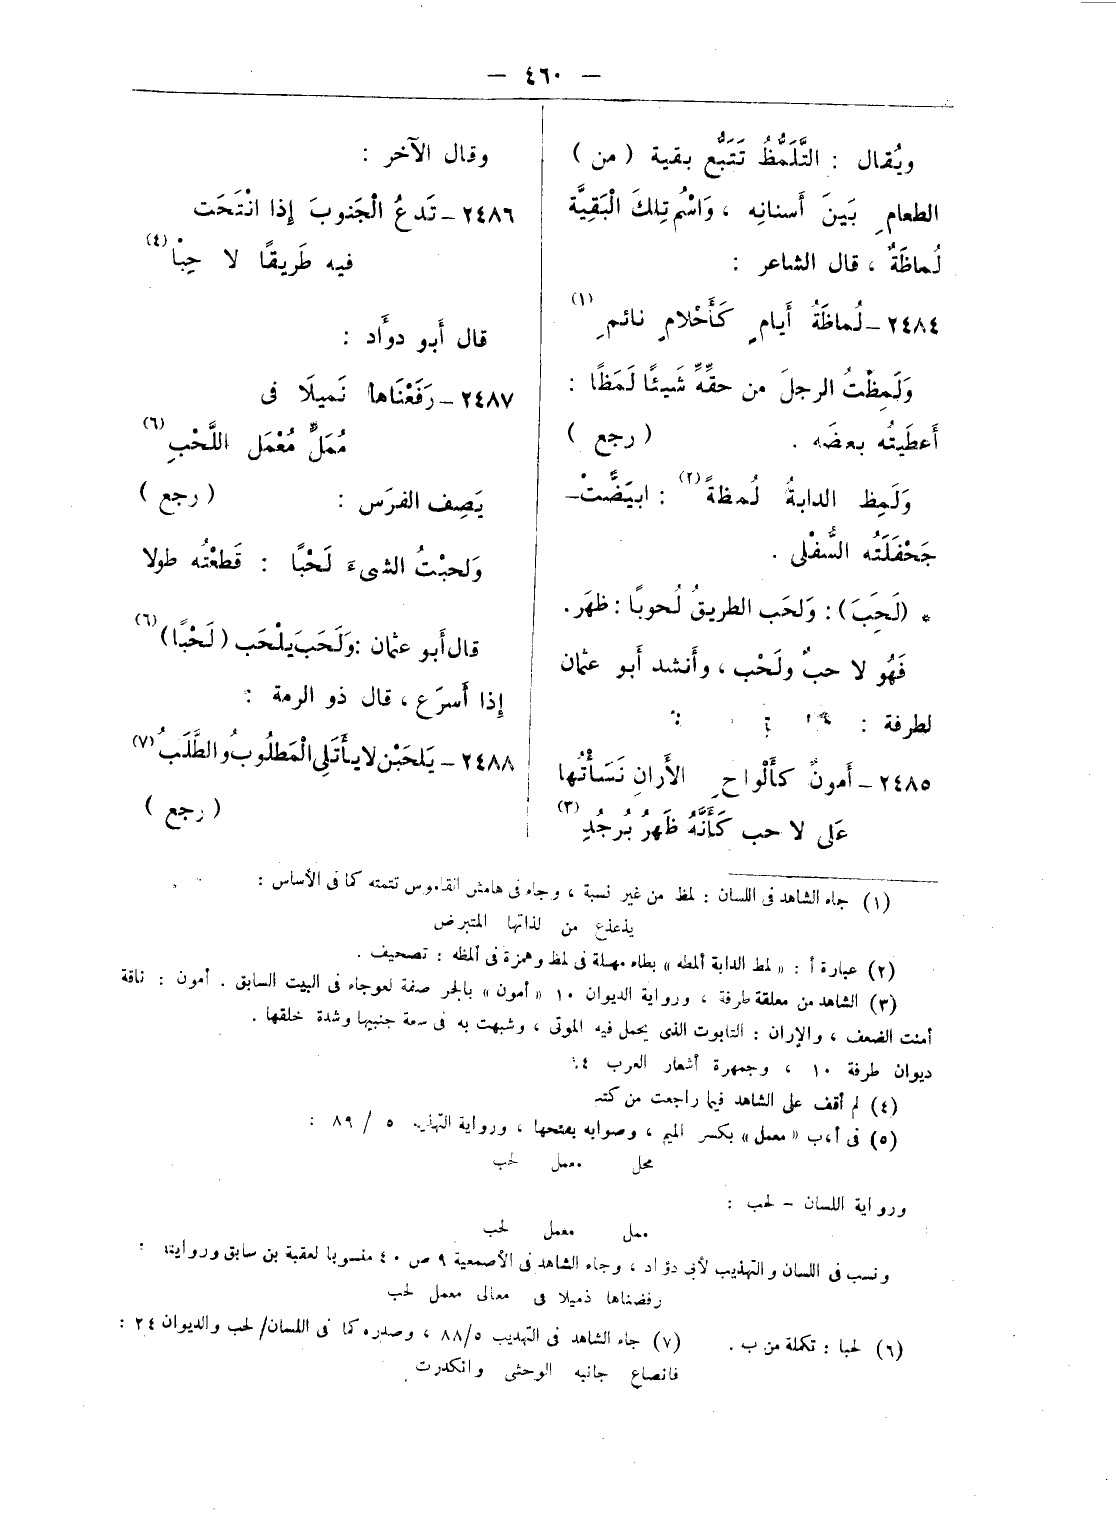 — ٤٦٠ —
ويُقال : التَّلَمُّظُ تَتَبُّع بقية ( من )
الطعامِ بَينَ أسنانِه ، وَاسْمُ تِلكَ الْبَقِيَّة
لُماظَةٌ ، قال الشاعر :
٢٤٨٤ – لُماظَةُ أَيامٍ كَأَحْلامِ نائمِ (١)
وَلَمِظْتُ الرجلَ من حقِّهِ شَيئًا لَمَظًا :
أَعطَيتُه بعضَه . ( رجع )
وَلَمِظ الدابةُ لُمظةً (٢) : ابيَضَّتْ
جَحْفَلَتُه السُّفْلى .
* (لَحَبَ) : وَلحَب الطريقُ لُحوبًا : ظهَر .
فَهُو لا حبٌ ولَحْب ، وأنشد أبو عثمان
لطرفة :
٢٤٨٥ – أَمونٌ كأَلْواحِ الأَرانِ نَسَأْتُها
عَلى لا حب كَأَنَّهُ ظَهرُ بُرجُدِ (٣)
وقال الآخر :
٢٤٨٦ – تَدعُ الْجَنوبَ إذا انْتَحَت
فيه طَريقًا لا حِبًا (٤)
قال أبو دوَاد :
٢٤٨٧ – رَفَعْنَاها نَميلًا فى
مُمَلٍّ مُعْمَل اللَّحْبِ (٦)
يَصِف الفرَس : ( رجع )
وَلحبْتُ الشىءَ لَحْبًا : قَطعْتُه طولا
قال أبو عثمان : وَلَحَبَ يلْحَب ( لَحْبًا ) (٦)
إذا أسرَع ، قال ذو الرمة :
٢٤٨٨ – يَلحَبْن لا يأتَلى الْمَطلُوبُ والطَّلَبُ (٧)
( رجع )
(١) جاء الشاهد فى اللسان : لمظ من غير نسبة ، وجاء فى هامش القاموس تتمته كما فى الأساس :
يذعذع من لذاتها المتبرض
(٢) عبارة أ : « لمط الدابة ألمطه » بطاء مهملة فى لمظ وهمزة فى ألمظه : تصحيف .
(٣) الشاهد من معلقة طرفة ، ورواية الديوان ١٠ « أمون » بالجر صفة لعوجاء فى البيت السابق . أمون : ناقة
أمنت الضعف ، والإران : التابوت الذى يحمل فيه الموتى ، وشبهت به فى سعة جنبيها وشدة خلقها .
ديوان طرفة ١٠ ، وجمهرة أشعار العرب
(٤) لم أقف على الشاهد فيما راجعت من كتب
(٥) فى أ،ب « معمل » بكسر الميم ، وصوابه بفتحها ، ورواية التهذيب ٥ / ٨٩ :
محل معمل لحب
ورواية اللسان – لحب :
ممل معمل لحب
ونسب فى اللسان والتهذيب لأبى دؤاد ، وجاء الشاهد فى الأصمعية ٩ ص ٤٠ منسوبا لعقبة بن سابق وروايته :
رفضناها ذميلا فى معالى معمل لحب
(٦) لحبا : تكملة من ب . (٧) جاء الشاهد فى التهذيب ٨٨/٥ ، وصدره كما فى اللسان/ لحب والديوان ٢٤ :
فانصاع جانبه الوحشى وانكدرت